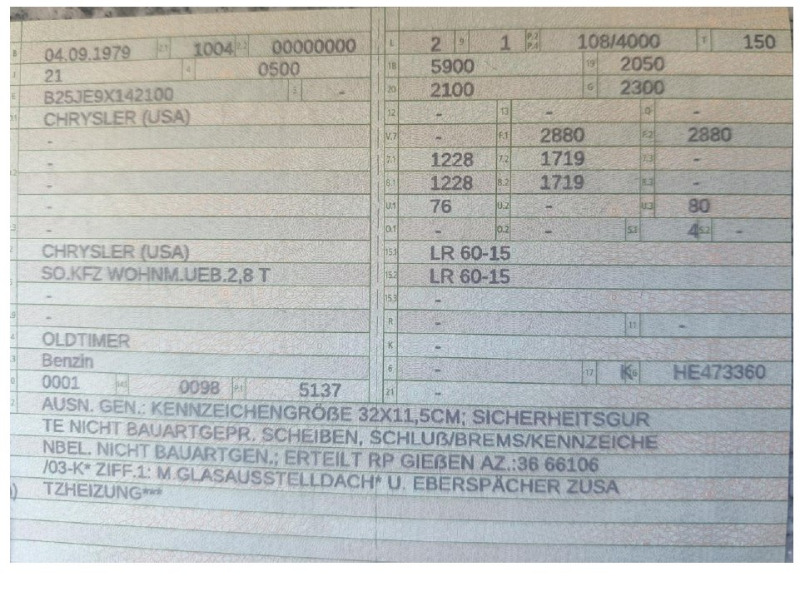 B 04.09.1979 2.1 1004 2.2 00000000
21 4 0500
B25JE9X142100 3 -
CHRYSLER (USA)
-
-
-
-
-
CHRYSLER (USA)
SO.KFZ WOHNM.UEB.2,8 T
-
-
OLDTIMER
Benzin
0001 0098 P.1 5137
L 2 9 1 P.2 P.4 108/4000 T 150
18 5900 19 2050
20 2100 G 2300
12 - 13 - Q -
V.7 - F.1 2880 F.2 2880
7.1 1228 7.2 1719 7.3 -
8.1 1228 8.2 1719 8.3 -
U.1 76 U.2 - U.3 80
O.1 - O.2 - S.1 4 S.2 -
15.1 LR 60-15
15.2 LR 60-15
15.3 -
R - 11 -
K -
6 - 17 K 16 HE473360
21 -
AUSN. GEN.: KENNZEICHENGRÖßE 32X11,5CM; SICHERHEITSGUR
TE NICHT BAUARTGEPR. SCHEIBEN, SCHLUß/BREMS/KENNZEICHE
NBEL. NICHT BAUARTGEN.; ERTEILT RP GIEßEN AZ.:36 66106
/03-K* ZIFF.1: M.GLASAUSSTELLDACH* U. EBERSPÄCHER ZUSA
TZHEIZUNG***